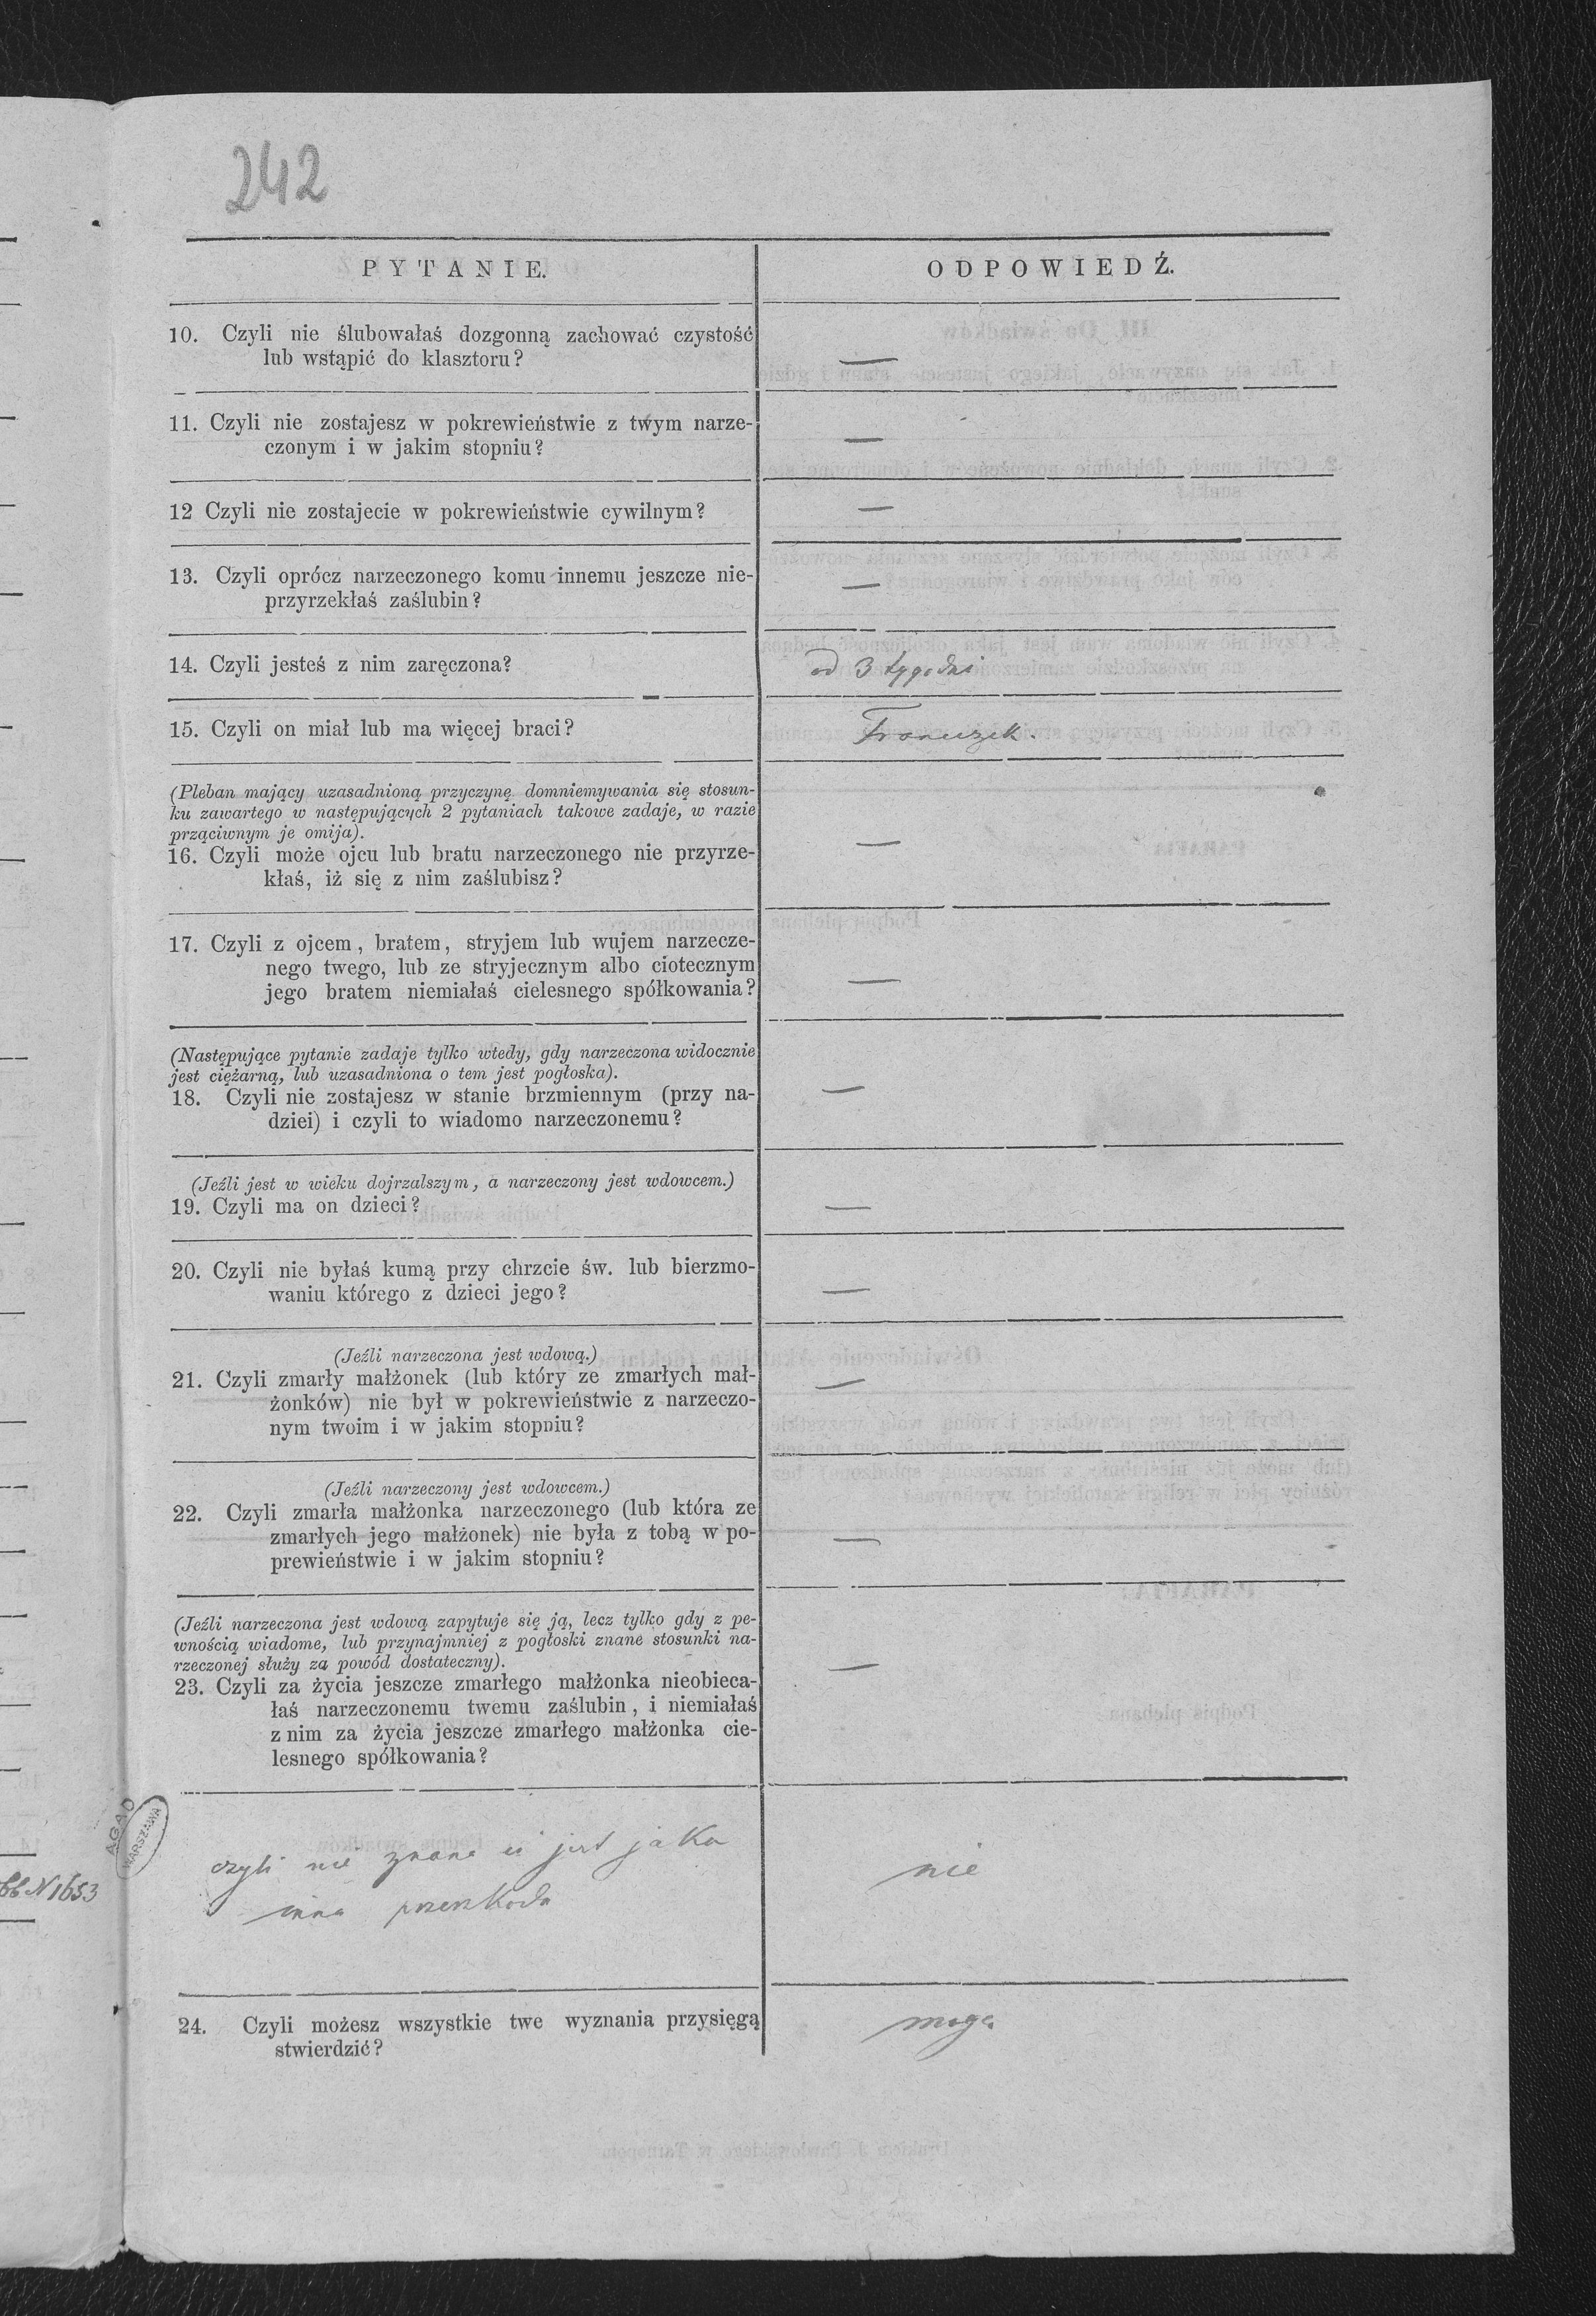 242
PYTANIE.
ODPOWIEDŹ.
10. Czyli nie ślubowałaś dozgonną zachować czystość
lub wstąpić do klasztoru?
—
11. Czyli nie zostajesz w pokrewieństwie z twym narze-
czonym i w jakim stopniu?
—
12 Czyli nie zostajecie w pokrewieństwie cywilnym?
—
13. Czyli oprócz narzeczonego komu innemu jeszcze nie-
przyrzekłaś zaślubin?
—
14. Czyli jesteś z nim zaręczona?
od 3 tygodni
15. Czyli on miał lub ma więcej braci?
Franciszek.
(Pleban mający uzasadnioną przyczynę domniemywania się stosun-
ku zawartego w następujących 2 pytaniach takowe zadaje, w razie
prząciwnym je omija).
16. Czyli może ojcu lub bratu narzeczonego nie przyrze-
kłaś, iż się z nim zaślubisz?
—
17. Czyli z ojcem, bratem, stryjem lub wujem narzecze-
nego twego, lub ze stryjecznym albo ciotecznym
jego bratem niemiałaś cielesnego spółkowania?
—
(Następujące pytanie zadaje tylko wtedy, gdy narzeczona widocznie
jest ciężarną, lub uzasadniona o tem jest pogłoska).
18. Czyli nie zostajesz w stanie brzmiennym (przy na-
dziei) i czyli to wiadomo narzeczonemu?
—
(Jeźli jest w wieku dojrzalszym, a narzeczony jest wdowcem.)
19. Czyli ma on dzieci?
—
20. Czyli nie byłaś kumą przy chrzcie św. lub bierzmo-
waniu którego z dzieci jego?
—
(Jeźli narzeczona jest wdową.)
21. Czyli zmarły małżonek (lub który ze zmarłych mał-
żonków) nie był w pokrewieństwie z narzeczo-
nym twoim i w jakim stopniu?
—
(Jeźli narzeczony jest wdowcem.)
22. Czyli zmarła małżonka narzeczonego (lub która ze
zmarłych jego małżonek) nie była z tobą w po-
prewieństwie i w jakim stopniu?
—
(Jeźli narzeczona jest wdową zapytuje się ją, lecz tylko gdy z pe-
wnością wiadome, lub przynajmniej z pogłoski znane stosunki na-
rzeczonej służy za powód dostateczny).
23. Czyli za życia jeszcze zmarłego małżonka nieobieca-
łaś narzeczonemu twemu zaślubin, i niemiałaś
z nim za życia jeszcze zmarłego małżonka cie-
lesnego spółkowania?
—
AGAD
WARSZAWA
N 1653
czyli nie znana ci jest jaka
inna przeszkoda
nie
24. Czyli możesz wszystkie twe wyznania przysięgą
stwierdzić?
mogę